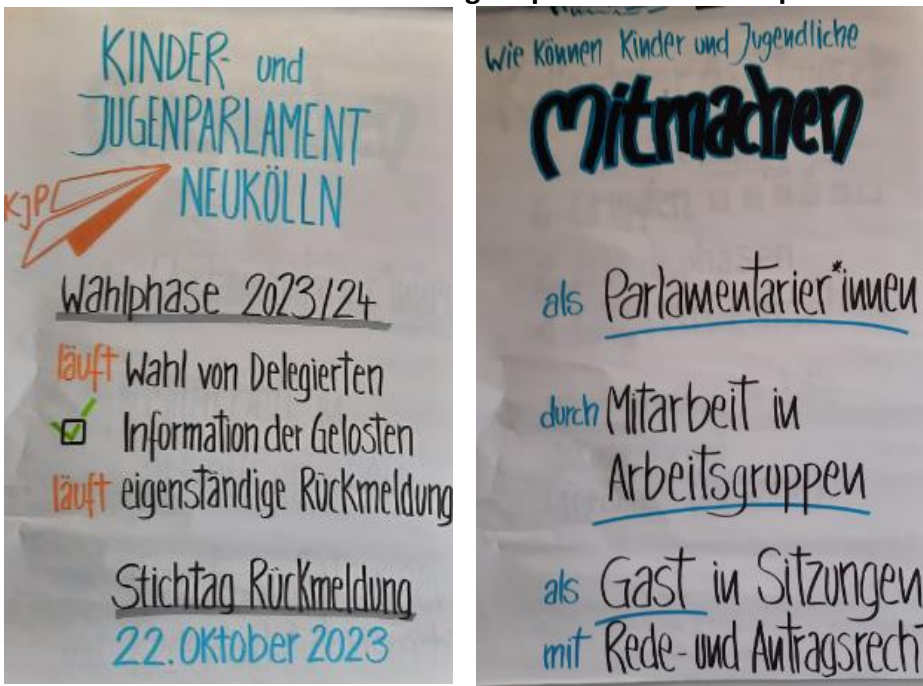 KINDER- und
JUGENPARLAMENT
NEUKÖLLN
KJP
Wahlphase 2023/24
läuft Wahl von Delegierten
Information der Gelosten
läuft eigenständige Rückmeldung
Stichtag Rückmeldung
22. Oktober 2023
Wie können Kinder und Jugendliche
Mitmachen
als Parlamentarier*innen
durch Mitarbeit in
Arbeitsgruppen
als Gast in Sitzungen
mit Rede- und Antragsrecht